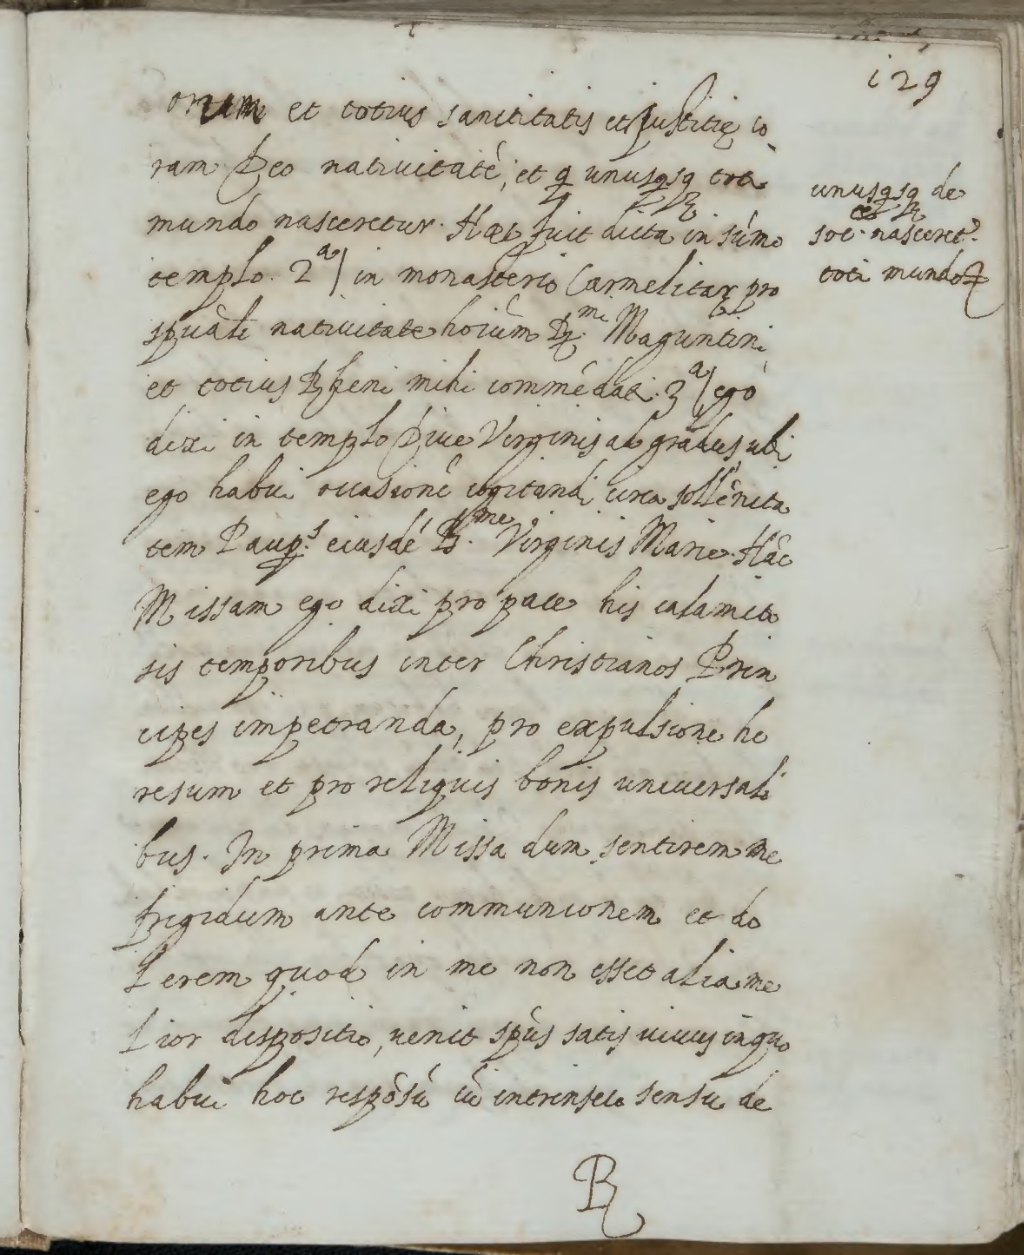 129
orum et totius sanctitatis et justitię co
ram Deo nativitatē, et ꝙ unusqsq toti
mundo nasceretur. Hæc fuit dicta in sūmo
templo. 2ᵃ/ in monasterio Carmelitaꝝ pro
spūali nativitate hoium Rᵐⁱ Maguntini
et totius Rheni mihi commēdati. 3ᵃ/ ego
dixi in templo Dive Virginis ad gradus, ubi
ego habui occasionē cogitandi circa sollēnita
tem eiusdē Bᵐᵉ Virginis Marie. Hāc
Missam ego dixi pro pace his calamito
sis temporibus inter Christianos Prin
cipes impetranda, pro expulsione he
resum et pro reliquis bonis universali
bus. In prima Missa dum sentirem me
frigidum ante communionem et do
lerem quod in me non esset alia me
lior dispositio, venit spūs satis vivus in quo
habui hoc respōsū cū intrinseco sensu de
unusqsq de
soc. nasceret.
toti mundo